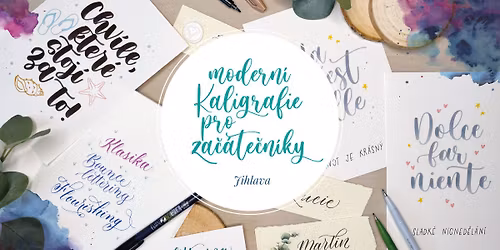 Chvíle,
které
stojí
za to!
moderní
Kaligrafie
pro
začátečníky
Jihlava
Klasika
Bounce
lettering
Flourishing
Dolce
far
niente
SLADKÉ NICNEDĚLÁNÍ
Lucie
Martin